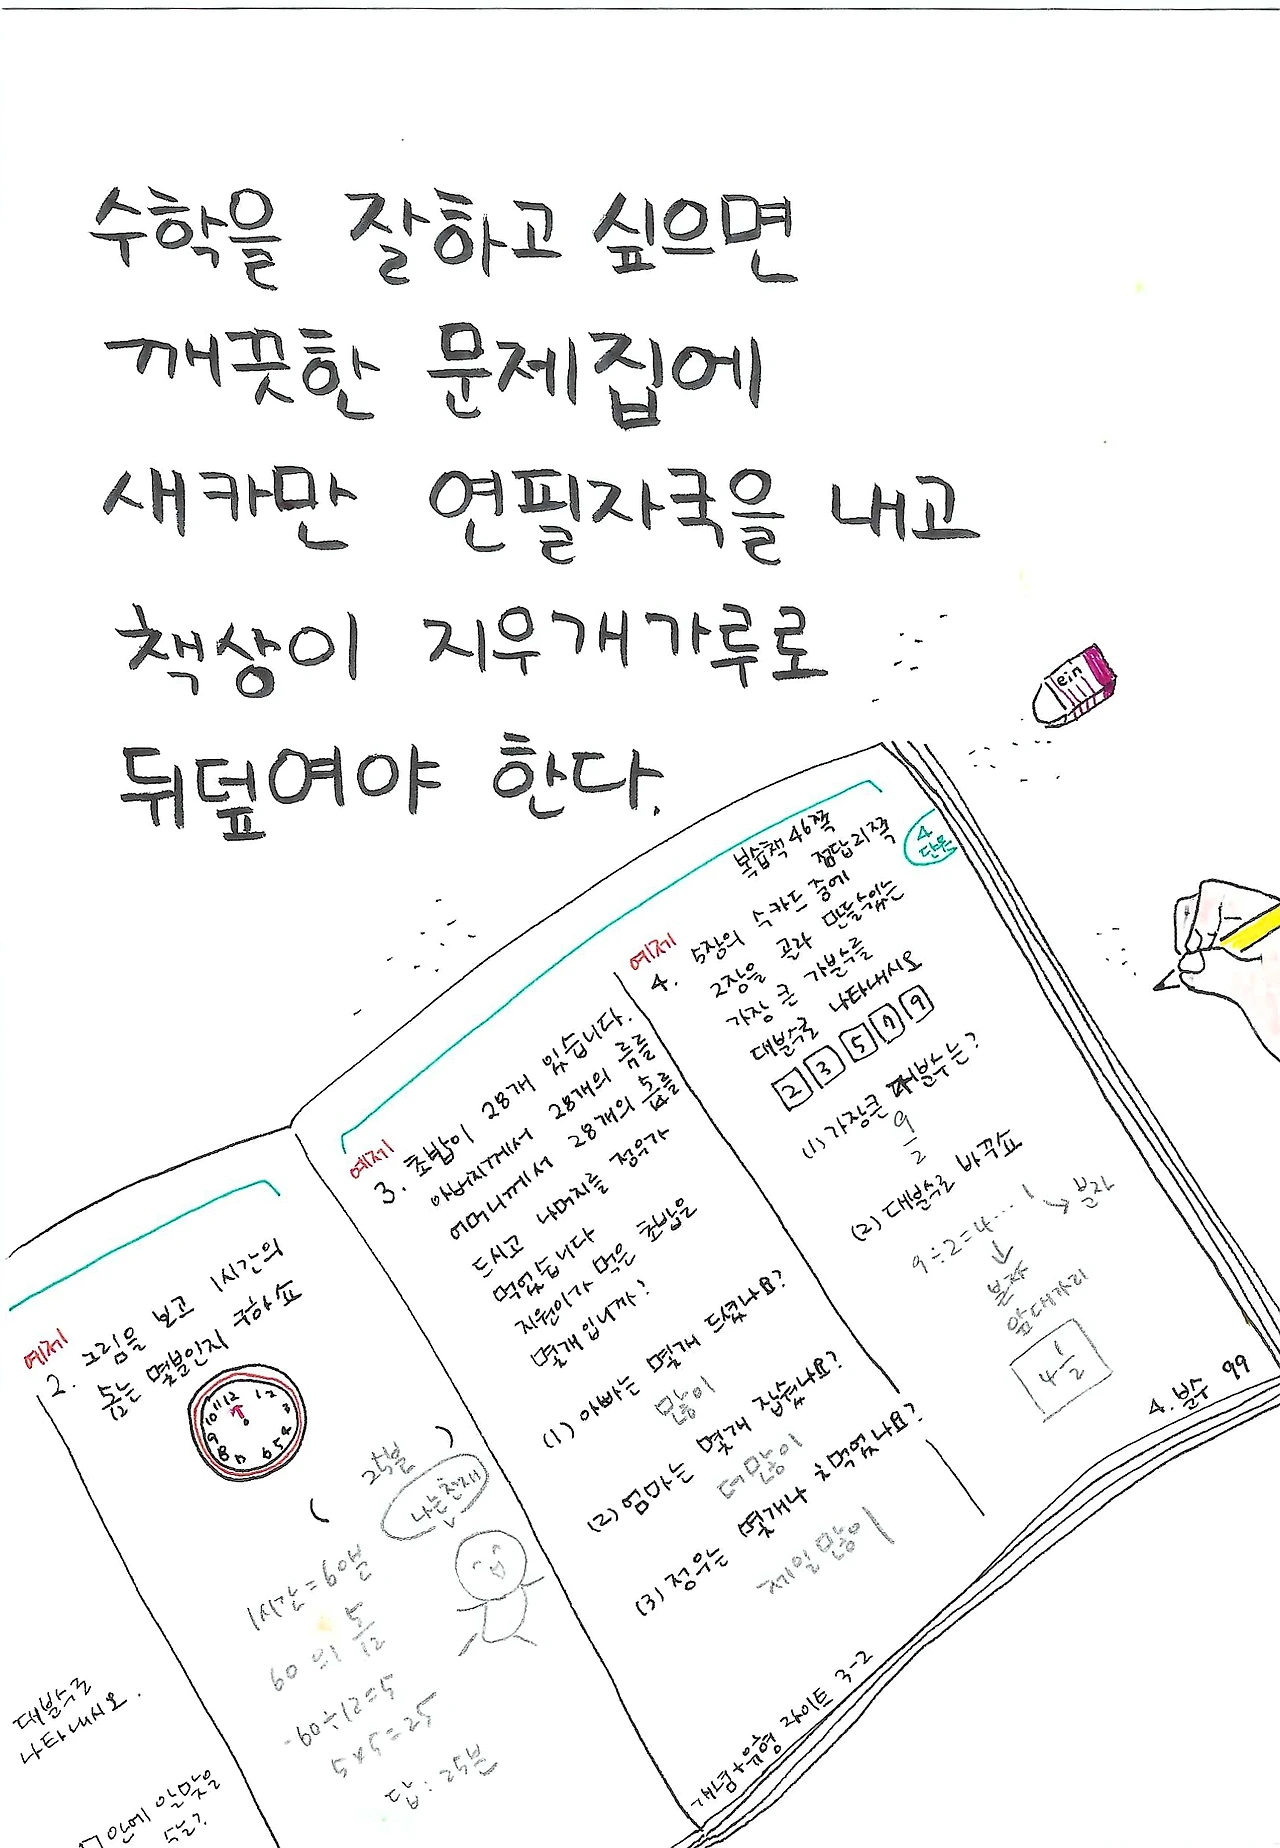 수학을 잘하고 싶으면
깨끗한 문제집에
새카만 연필자국을 내고
책상이 지우개가루로
뒤덮여야 한다.
ein
대분수로
나타내시오.
안에 알맞은
수는?
예제
2. 그림을 보고 1시간의
5/12는 몇분인지 구하쇼
12 1 2 3 4 5 6 7 8 9 10 11 12
( 25분 )
나는 천재
1시간=60분
60의 5/12
60÷12=5
5×5=25
답: 25분
예제
3. 초밥이 28개 있습니다.
아버지께서 28개의
어머니께서 28개의
드시고 나머지를 정우가
먹었습니다
지원이가 먹은 초밥은
몇개입니까?
(1) 아빠는 몇개 드셨나요?
많이
(2) 엄마는 몇개 잡쉈나요?
더 많이
(3) 정우는 몇개나 ㅊ먹었나요?
제일 많이
개념+유형 라이트 3-2
복습책 46쪽
정답 21쪽
4
단원
예제
4. 5장의 수카드 중에
2장을 골라 만들수있는
가장 큰 가분수를
대분수로 나타내시오
2 3 5 7 9
(1) 가장큰 가분수는?
9/2
(2) 대분수로 바꾸쇼
9÷2=4…1 → 분자
↓
분자
앞 대가리
4 1/2
4. 분수 99